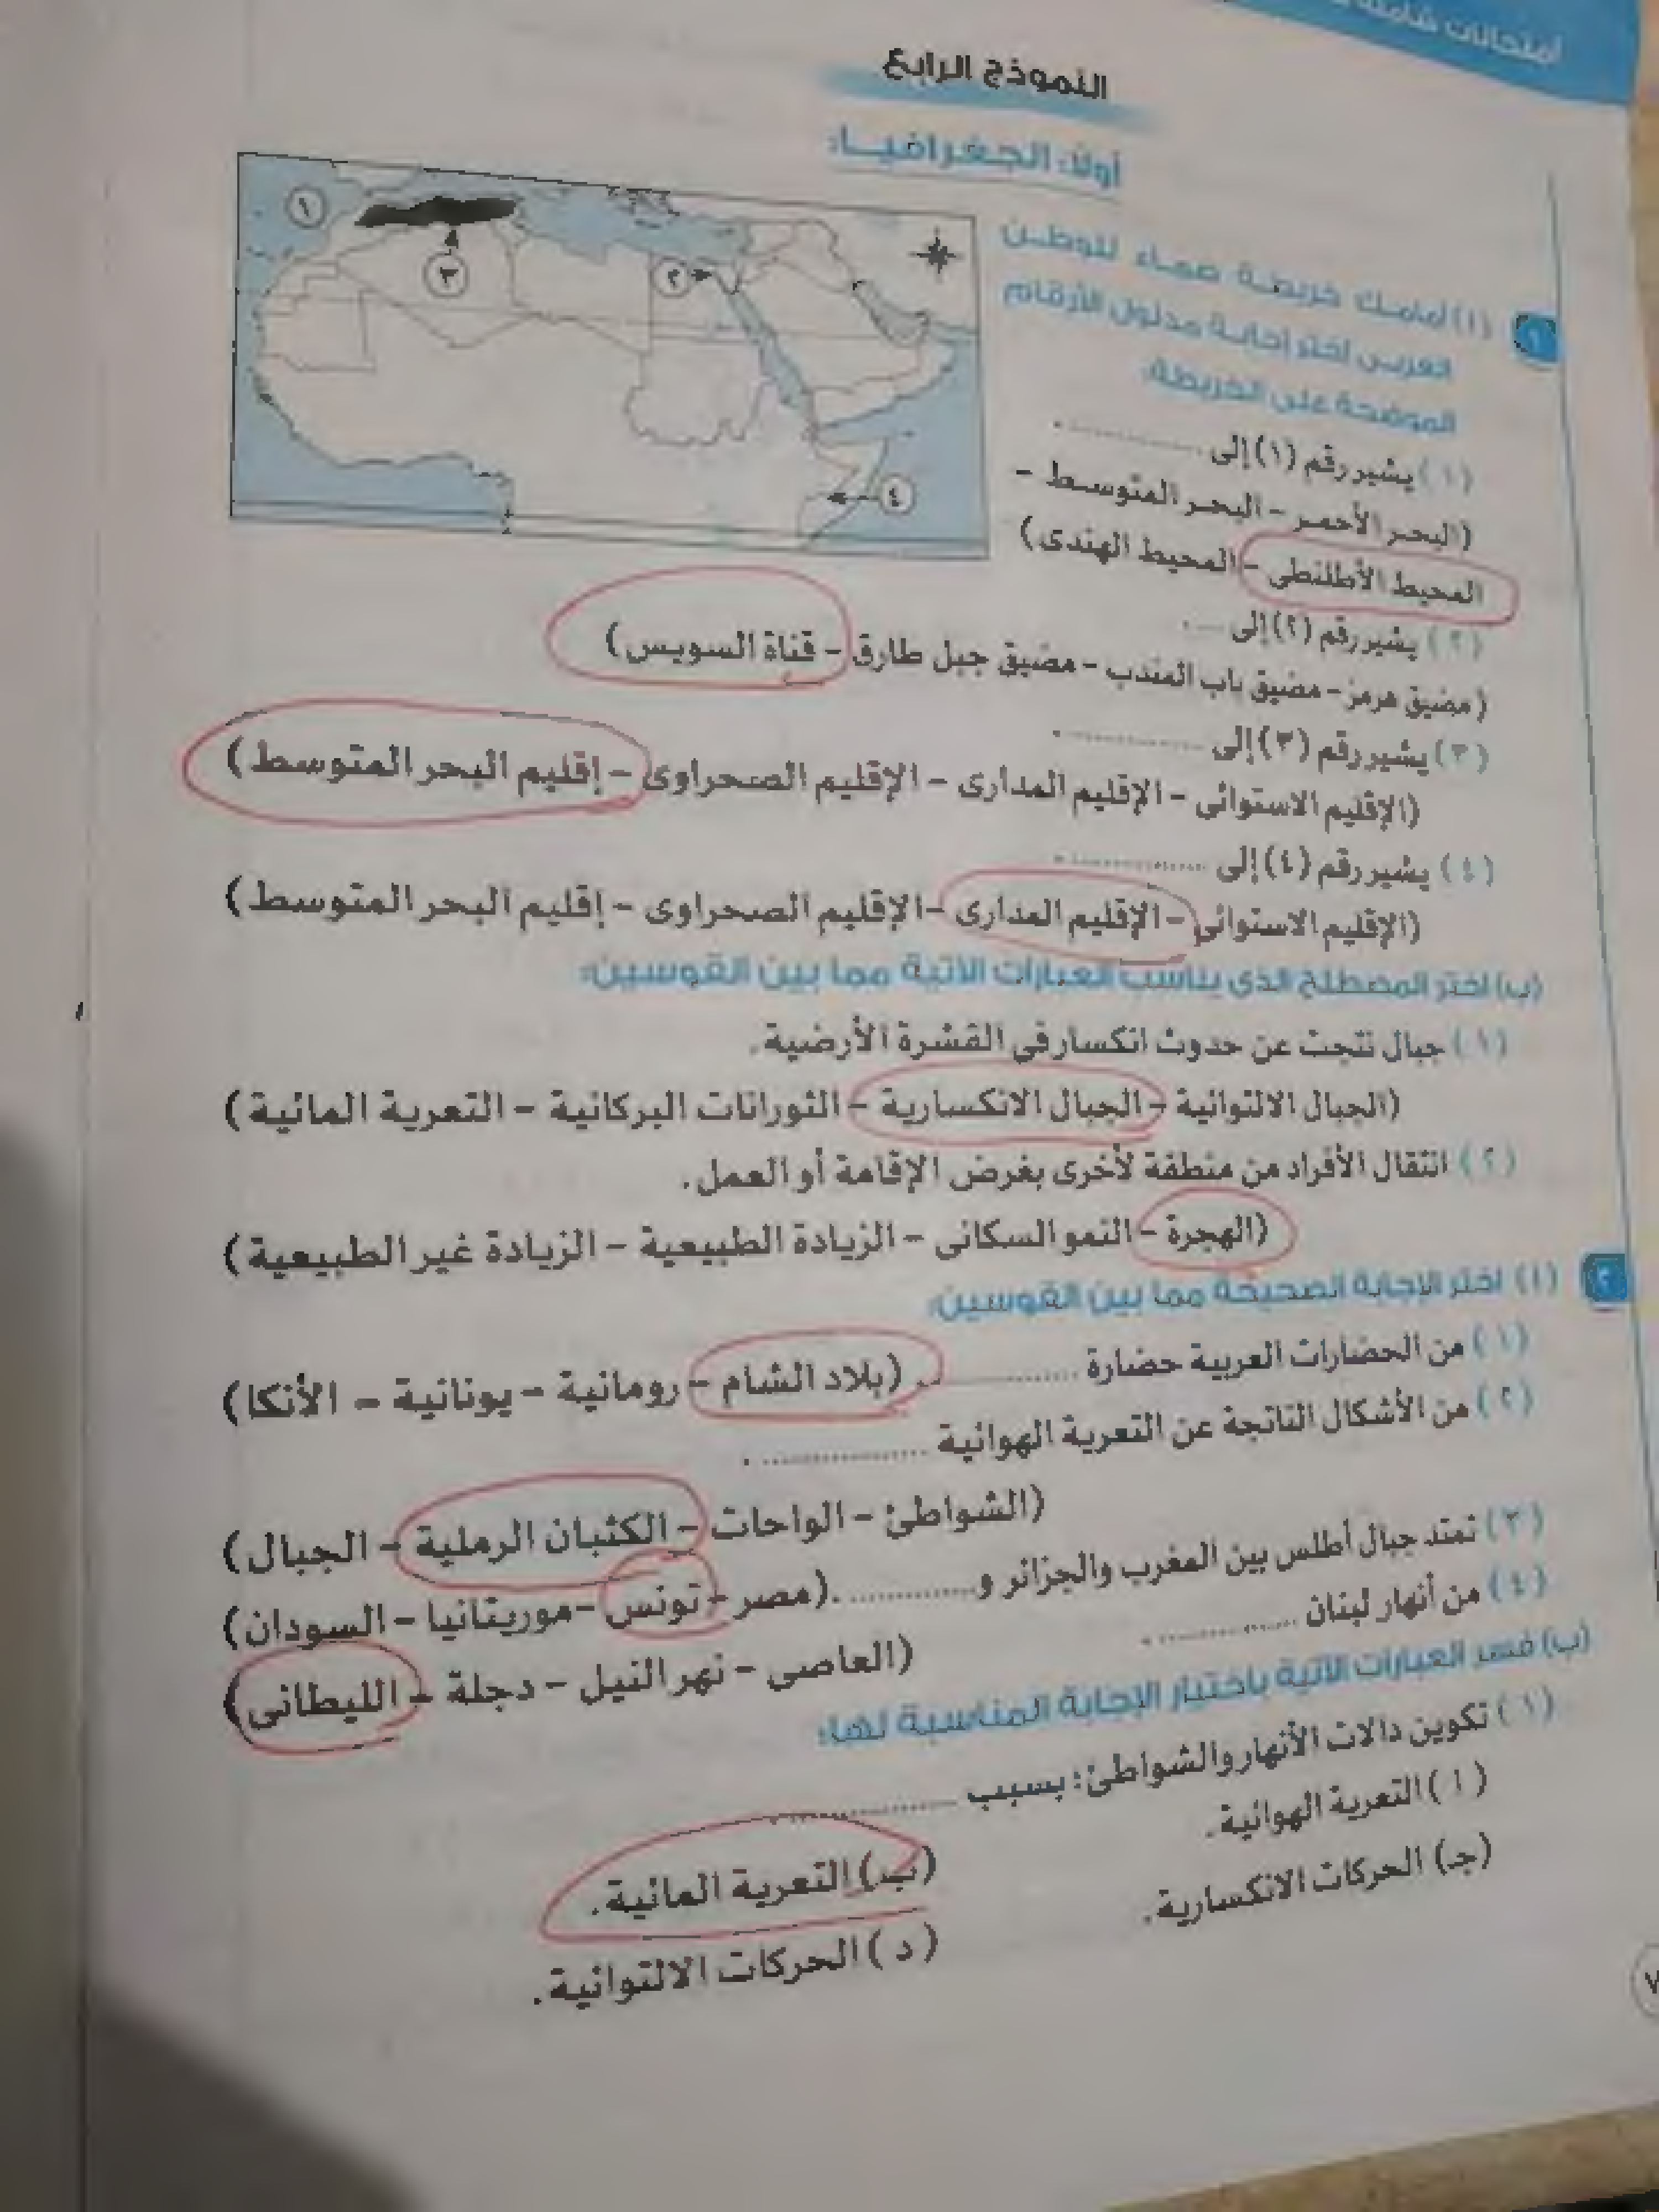 امتحانات شاملة
النموذج الرابع
أولاً: الجغرافيـــا:
١
٢
٣
٤
١ (أ) أمامـك خريطـة صمـاء للوطـن
العربـي اختر إجابـة مدلول الأرقام
الموضحة على الخريطة:
(١) يشير رقم (١) إلى ............ .
(البحـر الأحمـر – البحـر المتوسـط –
المحيط الأطلنطى – المحيط الهندى)
(٢) يشير رقم (٢) إلى .... .
(مضيق هرمز – مضيق باب المندب – مضيق جبل طارق – قناة السويس)
(٣) يشير رقم (٣) إلى ............ .
(الإقليم الاستوائى – الإقليم المدارى – الإقليم الصحراوى – إقليم البحر المتوسط)
(٤) يشير رقم (٤) إلى ............ .
(الإقليم الاستوائى – الإقليم المدارى – الإقليم الصحراوى – إقليم البحر المتوسط)
(ب) اختر المصطلح الذى يناسب العبارات الآتية مما بين القوسين:
(١) جبال نتجت عن حدوث انكسار في القشرة الأرضية.
(الجبال الالتوائية – الجبال الانكسارية – الثورانات البركانية – التعرية المائية)
(٢) انتقال الأفراد من منطقة لأخرى بغرض الإقامة أو العمل.
(الهجرة – النمو السكانى – الزيادة الطبيعية – الزيادة غير الطبيعية)
٢ (أ) اختر الإجابة الصحيحة مما بين القوسين:
(١) من الحضارات العربية حضارة ............ . (بلاد الشام – رومانية – يونانية – الأنكا)
(٢) من الأشكال الناتجة عن التعرية الهوائية ............ .
(الشواطئ – الواحات – الكثبان الرملية – الجبال)
(٣) تمتد جبال أطلس بين المغرب والجزائر و............ . (مصر – تونس – موريتانيا – السودان)
(٤) من أنهار لبنان ............ .
(العاصى – نهر النيل – دجلة – الليطانى)
(ب) فسر العبارات الآتية باختيار الإجابة المناسبة لها:
(١) تكوين دالات الأنهار والشواطئ؛ بسبب ............
(أ) التعرية الهوائية.
(ب) التعرية المائية.
(جـ) الحركات الانكسارية.
(د) الحركات الالتوائية.